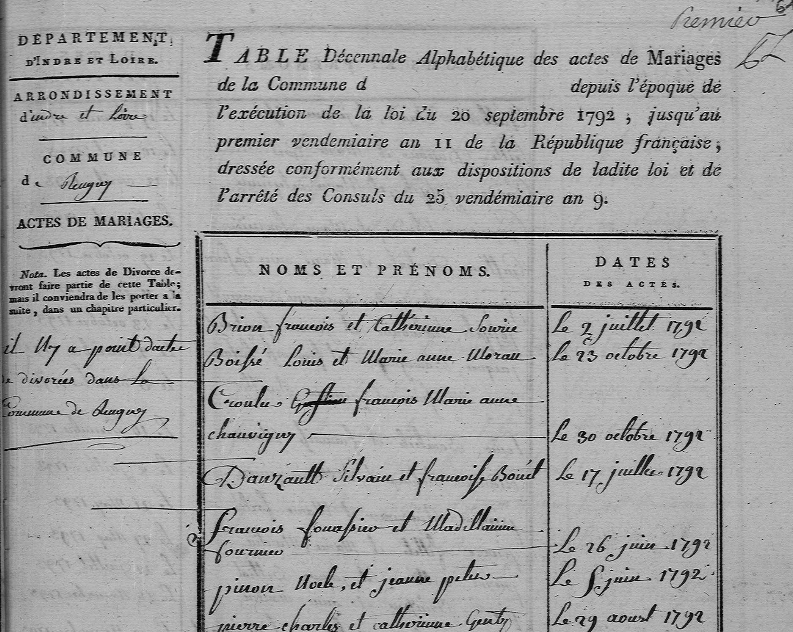 Premier
DÉPARTEMENT
D'INDRE ET LOIRE.
ARRONDISSEMENT
d'indre et Loire
COMMUNE
de Reugny
ACTES DE MARIAGES.
Nota. Les actes de Divorce de-
vront faire partie de cette Table;
mais il conviendra de les porter a la
suite, dans un chapitre particulier.
il Ny a point dacte
de divorcés dans la
Commune de Reugny
TABLE Décennale Alphabétique des actes de Mariages
de la Commune d depuis l'époque de
l'exécution de la loi du 20 septembre 1792, jusqu'au
premier vendemiaire an 11 de la République française,
dressée conformément aux dispositions de ladite loi et de
l'arrêté des Consuls du 25 vendémiaire an 9.
NOMS ET PRÉNOMS. DATES
DES ACTES.
Brion francois et Catherinne Le 2 juillet 1792
Boissé Louis et Marie anne Moreau Le 23 octobre 1792
francois Marie anne
chauvigny Le 30 octobre 1792
Dauzault Silvain et francoise Le 17 juillet 1792
francois et
fournier Le 26 juin 1792
pinon et jeanne Le 5 juin 1792
pierre charles et catherinne Genty Le 29 aoust 1792